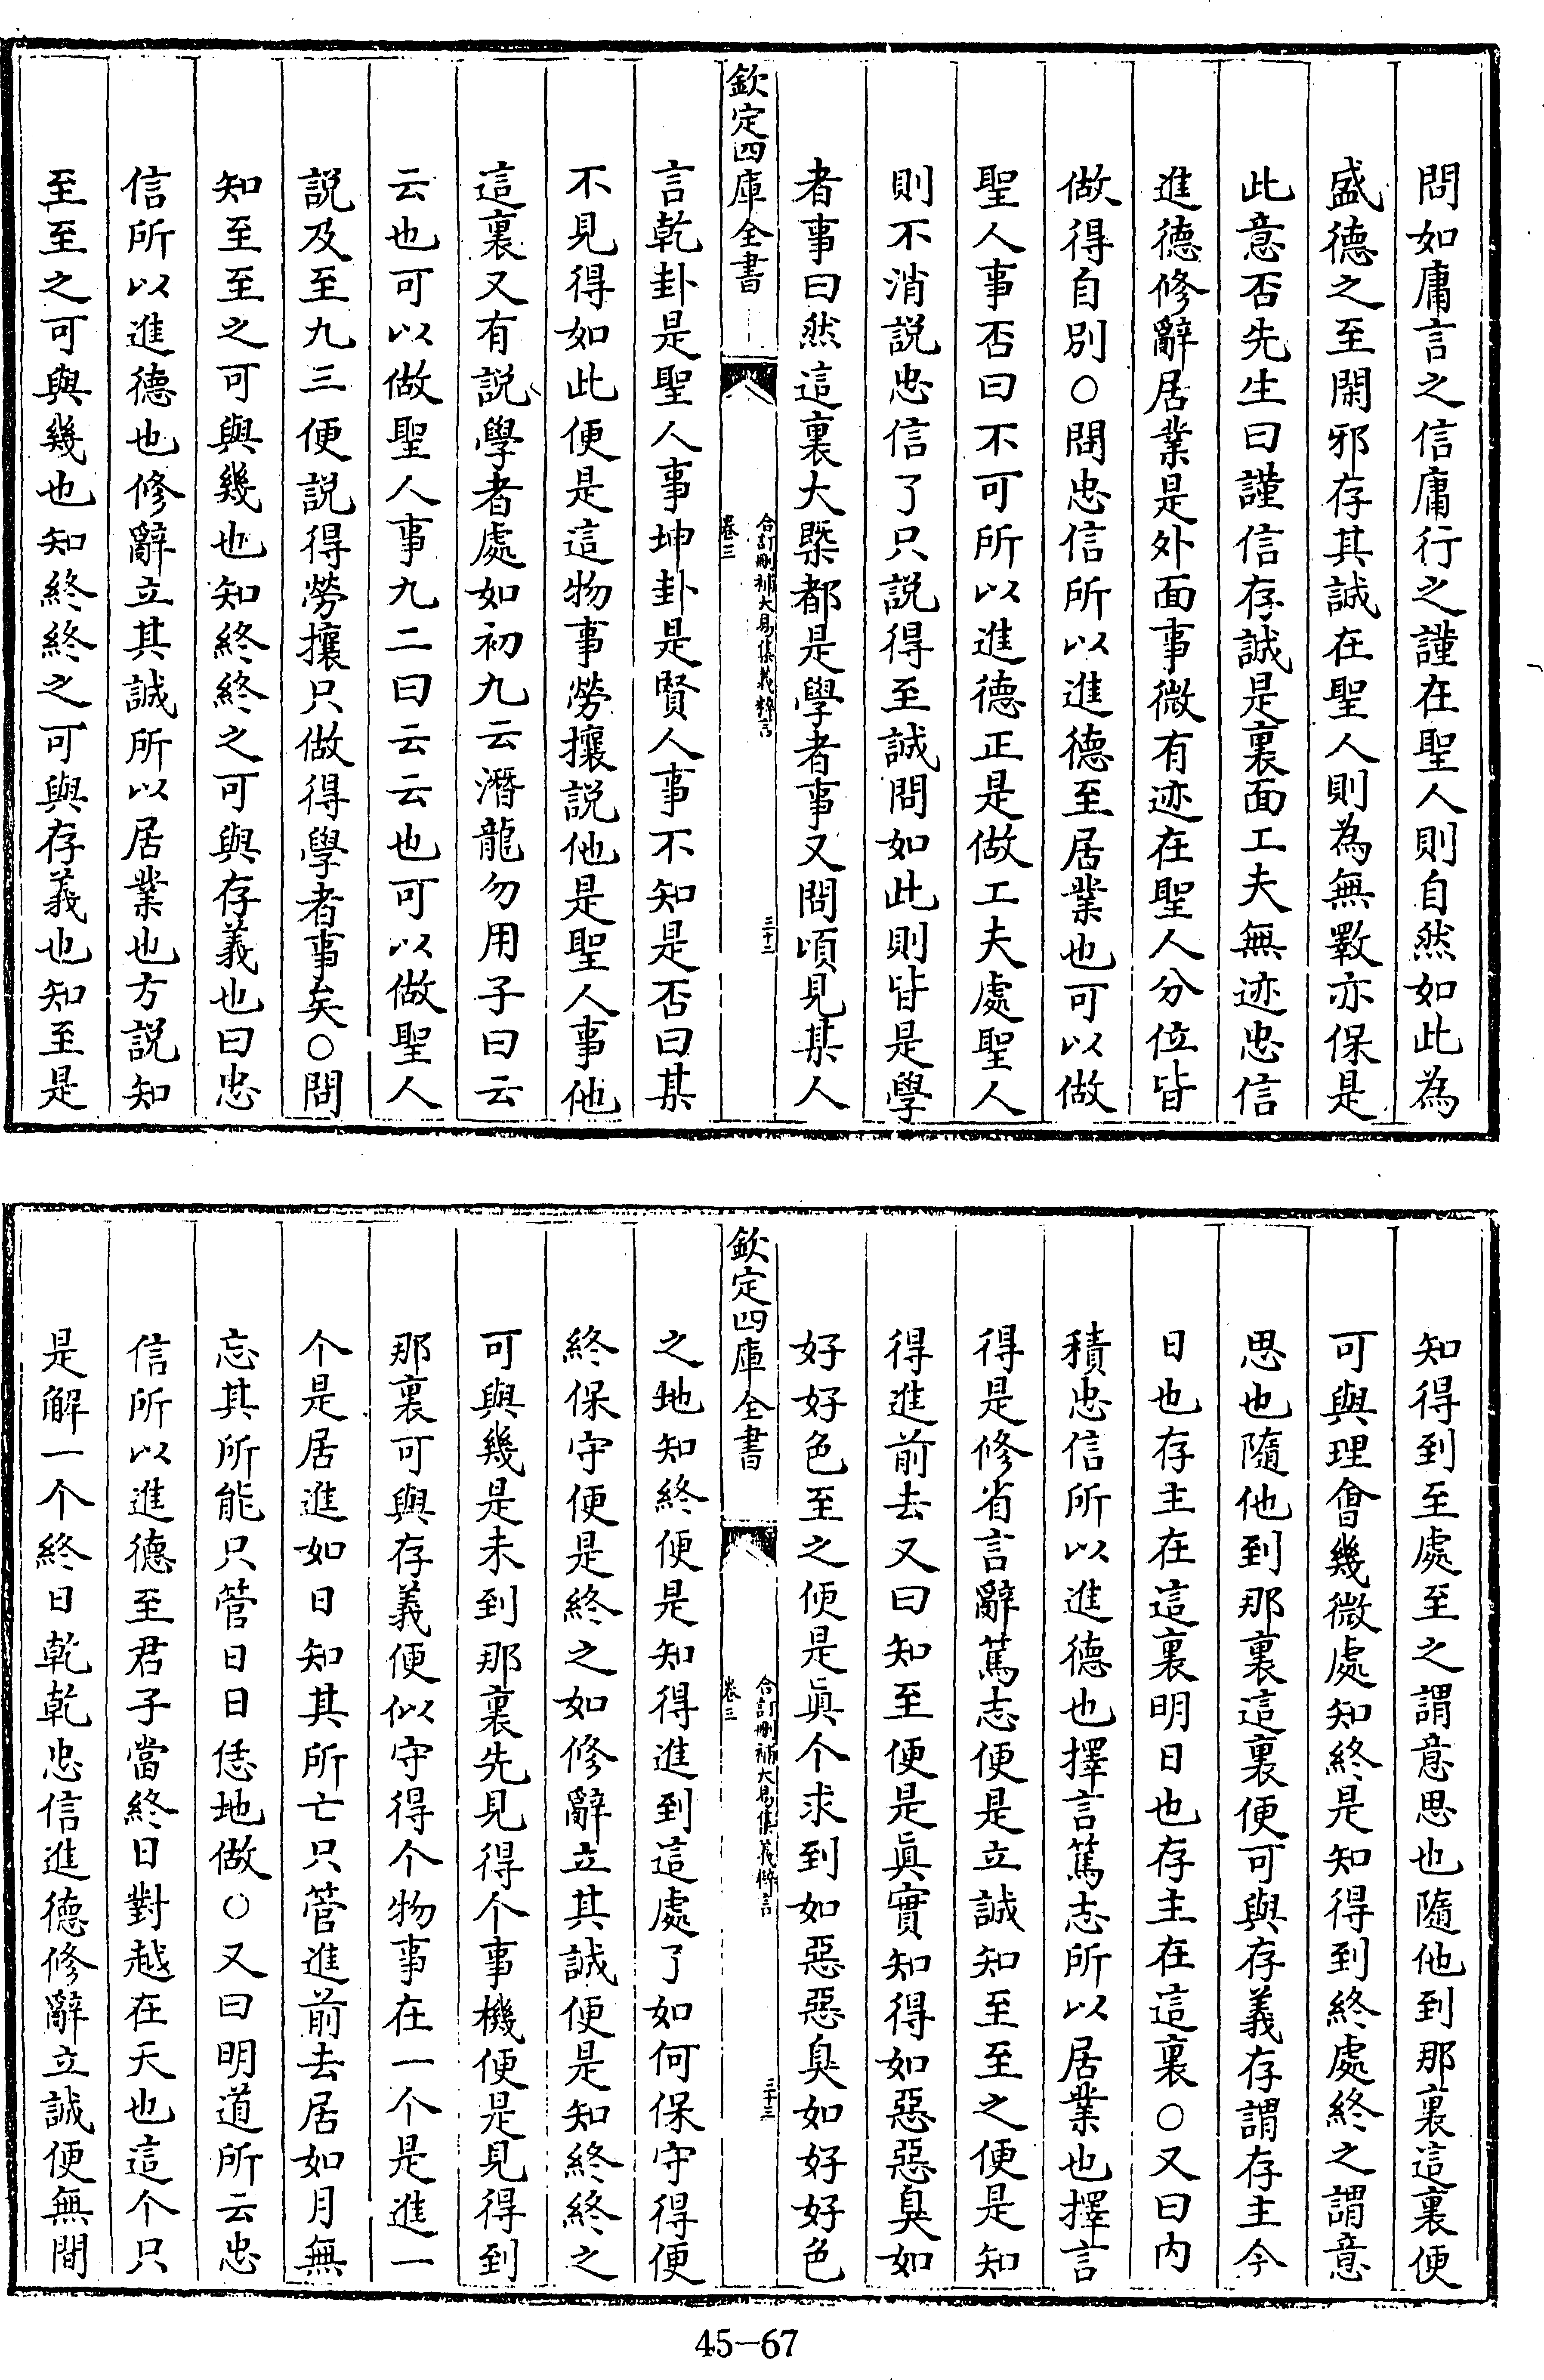 問如庸言之信庸行之謹在聖人則自然如此為
盛德之至閑邪存其誠在聖人則為無斁亦保是
此意否先生曰謹信存誠是裏面工夫無迹忠信
進德修辭居業是外面事微有迹在聖人分位皆
做得自別○問忠信所以進德至居業也可以做
聖人事否曰不可所以進德正是做工夫處聖人
則不消説忠信了只説得至誠問如此則皆是學
者事曰然這裏大槩都是學者事又問頃見某人
欽定四庫全書
合訂刪補大易集義粹言
卷三
三十二
言乾卦是聖人事坤卦是賢人事不知是否曰某
不見得如此便是這物事勞攘説他是聖人事他
這裏又有説學者處如初九云潛龍勿用子曰云
云也可以做聖人事九二曰云云也可以做聖人
説及至九三便説得勞攘只做得學者事矣○問
知至至之可與幾也知終終之可與存義也曰忠
信所以進德也修辭立其誠所以居業也方説知
至至之可與幾也知終終之可與存義也知至是
知得到至處至之謂意思也隨他到那裏這裏便
可與理會幾微處知終是知得到終處終之謂意
思也隨他到那裏這裏便可與存義存謂存主今
日也存主在這裏明日也存主在這裏○又曰内
積忠信所以進德也擇言篤志所以居業也擇言
得是修省言辭篤志便是立誠知至至之便是知
得進前去又曰知至便是眞實知得如惡惡臭如
好好色至之便是眞个求到如惡惡臭如好好色
欽定四庫全書
合訂刪補大易集義粹言
卷三
三十三
之地知終便是知得進到這處了如何保守得便
終保守便是終之如修辭立其誠便是知終終之
可與幾是未到那裏先見得个事機便是見得到
那裏可與存義便似守得个物事在一个是進一
个是居進如日知其所亡只管進前去居如月無
忘其所能只管日日恁地做○又曰明道所云忠
信所以進德至君子當終日對越在天也這个只
是解一个終日乾乾忠信進德修辭立誠便無間
45-67